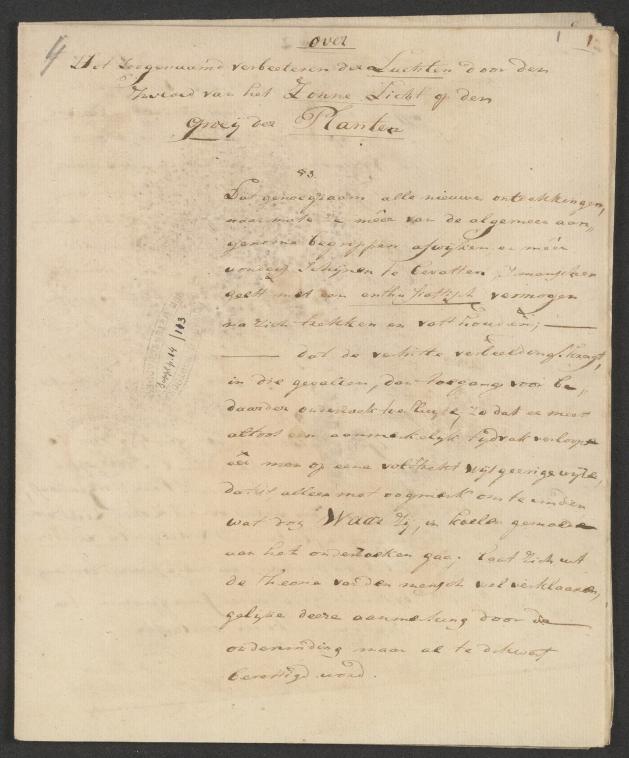 4
over
1
Het zoogenaamd verbeeteren der Luchten door den
Invloed van het Zonne Licht op den
groey der Planten
§3.
Dat genoegsaam alle nieuwe ontdekkingen,
naar mate ze méér van de algemeen aan„
genome begrippen afwijken en méér
wonders schijnen te bevatten, 's menschen
geest met een enthusiastisch vermogen
na zich trekken en vasthouden; —
— dat de verhitte verbeeldingskragt,
in die gevallen, den toegang voor be„
daarder onderzoek te sluyte, zo dat er meest
altoos een aanmerkelijk tijdvak verloopt
eêr men op eene volstrekt wijsgeerige wijze,
dat is alleen met oogmerk om te vinden
wat nog Waar zij, in koelen gemoede
aan het onderzoeken gaa; laat zich uit
de theorie van den mensch wel verklaaren,
gelijk deeze aanmerking door de
ondervinding maar al te dikwerf
bevestigd word.